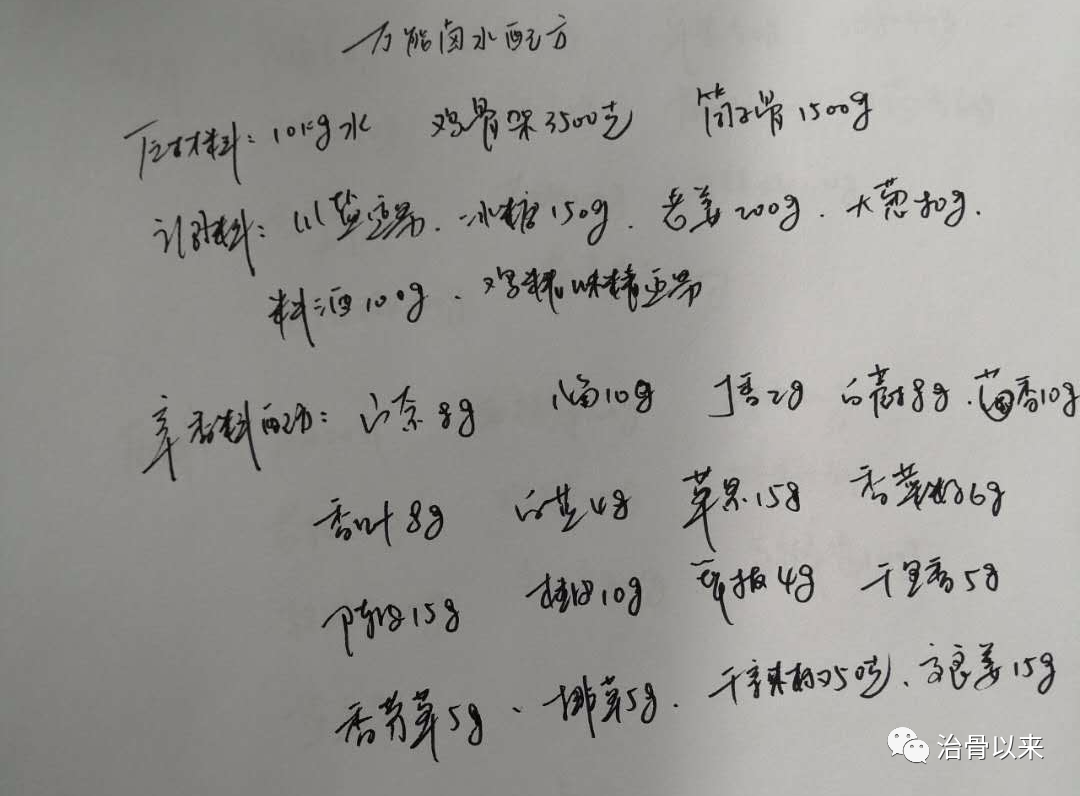 万能卤水配方
原材料：10kg水 鸡骨架3500克 筒子骨1500g
调味料：川盐适量．冰糖150g．老姜200g．大葱80g．
料酒100g．鸡精味精适量
辛香料配方：山奈8g 八角10g 丁香2g 白蔻8g．茴香10g
香叶8g 白芷4g 草果15g 香草籽6g
陈皮15g 桂皮10g 荜拨4g 千里香5g
香茅草5g、排草5g．干辣椒50克、高良姜15g
治骨以来